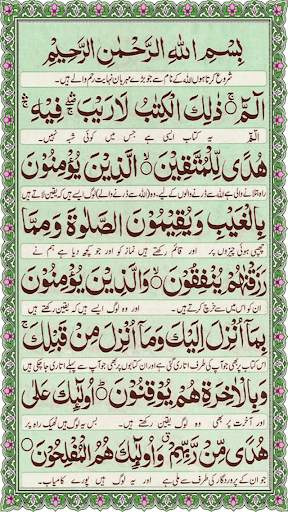 بِسْمِ اللهِ الرَّحْمٰنِ الرَّحِيْمِ
شروع کرتا ہوں اللہ کے نام سے جو بڑے مہربان نہایت رحم والے ہیں۔
الٓمّٓ ۚ ذٰلِكَ الْكِتٰبُ لَا رَيْبَ ۛ فِيْهِ ۛ
الٓمّٓ یہ کتاب ایسی ہے جس میں کوئی شبہ نہیں۔
هُدًى لِّلْمُتَّقِيْنَ ۙ الَّذِيْنَ يُؤْمِنُوْنَ
راہ بتلانے والی ہے اللہ سے ڈرنے والوں کے لیے۔ وہ (اللہ سے ڈرنے والے) لوگ ایسے ہیں کہ یقین لاتے ہیں
بِالْغَيْبِ وَيُقِيْمُوْنَ الصَّلٰوةَ وَمِمَّا
چھپی ہوئی چیزوں پر اور قائم رکھتے ہیں نماز کو اور جو کچھ دیا ہے ہم نے
رَزَقْنٰهُمْ يُنْفِقُوْنَ ۙ وَالَّذِيْنَ يُؤْمِنُوْنَ
ان کو اس میں سے خرچ کرتے ہیں۔ اور وہ لوگ ایسے ہیں کہ یقین رکھتے ہیں
بِمَآ اُنْزِلَ اِلَيْكَ وَمَآ اُنْزِلَ مِنْ قَبْلِكَ ۚ
اس کتاب پر بھی جو آپ کی طرف اتاری گئی ہے اور ان کتابوں پر بھی جو آپ سے پہلے اتاری جا چکی ہیں
وَبِالْاٰخِرَةِ هُمْ يُوْقِنُوْنَ ۭ اُولٰٓئِكَ عَلٰى
اور آخرت پر بھی وہ لوگ یقین رکھتے ہیں۔ بس یہ لوگ ہیں ٹھیک راہ پر
هُدًى مِّنْ رَّبِّهِمْ ۤ وَاُولٰٓئِكَ هُمُ الْمُفْلِحُوْنَ
جو ان کے پروردگار کی طرف سے ملی ہے اور یہ لوگ ہیں پورے کامیاب۔